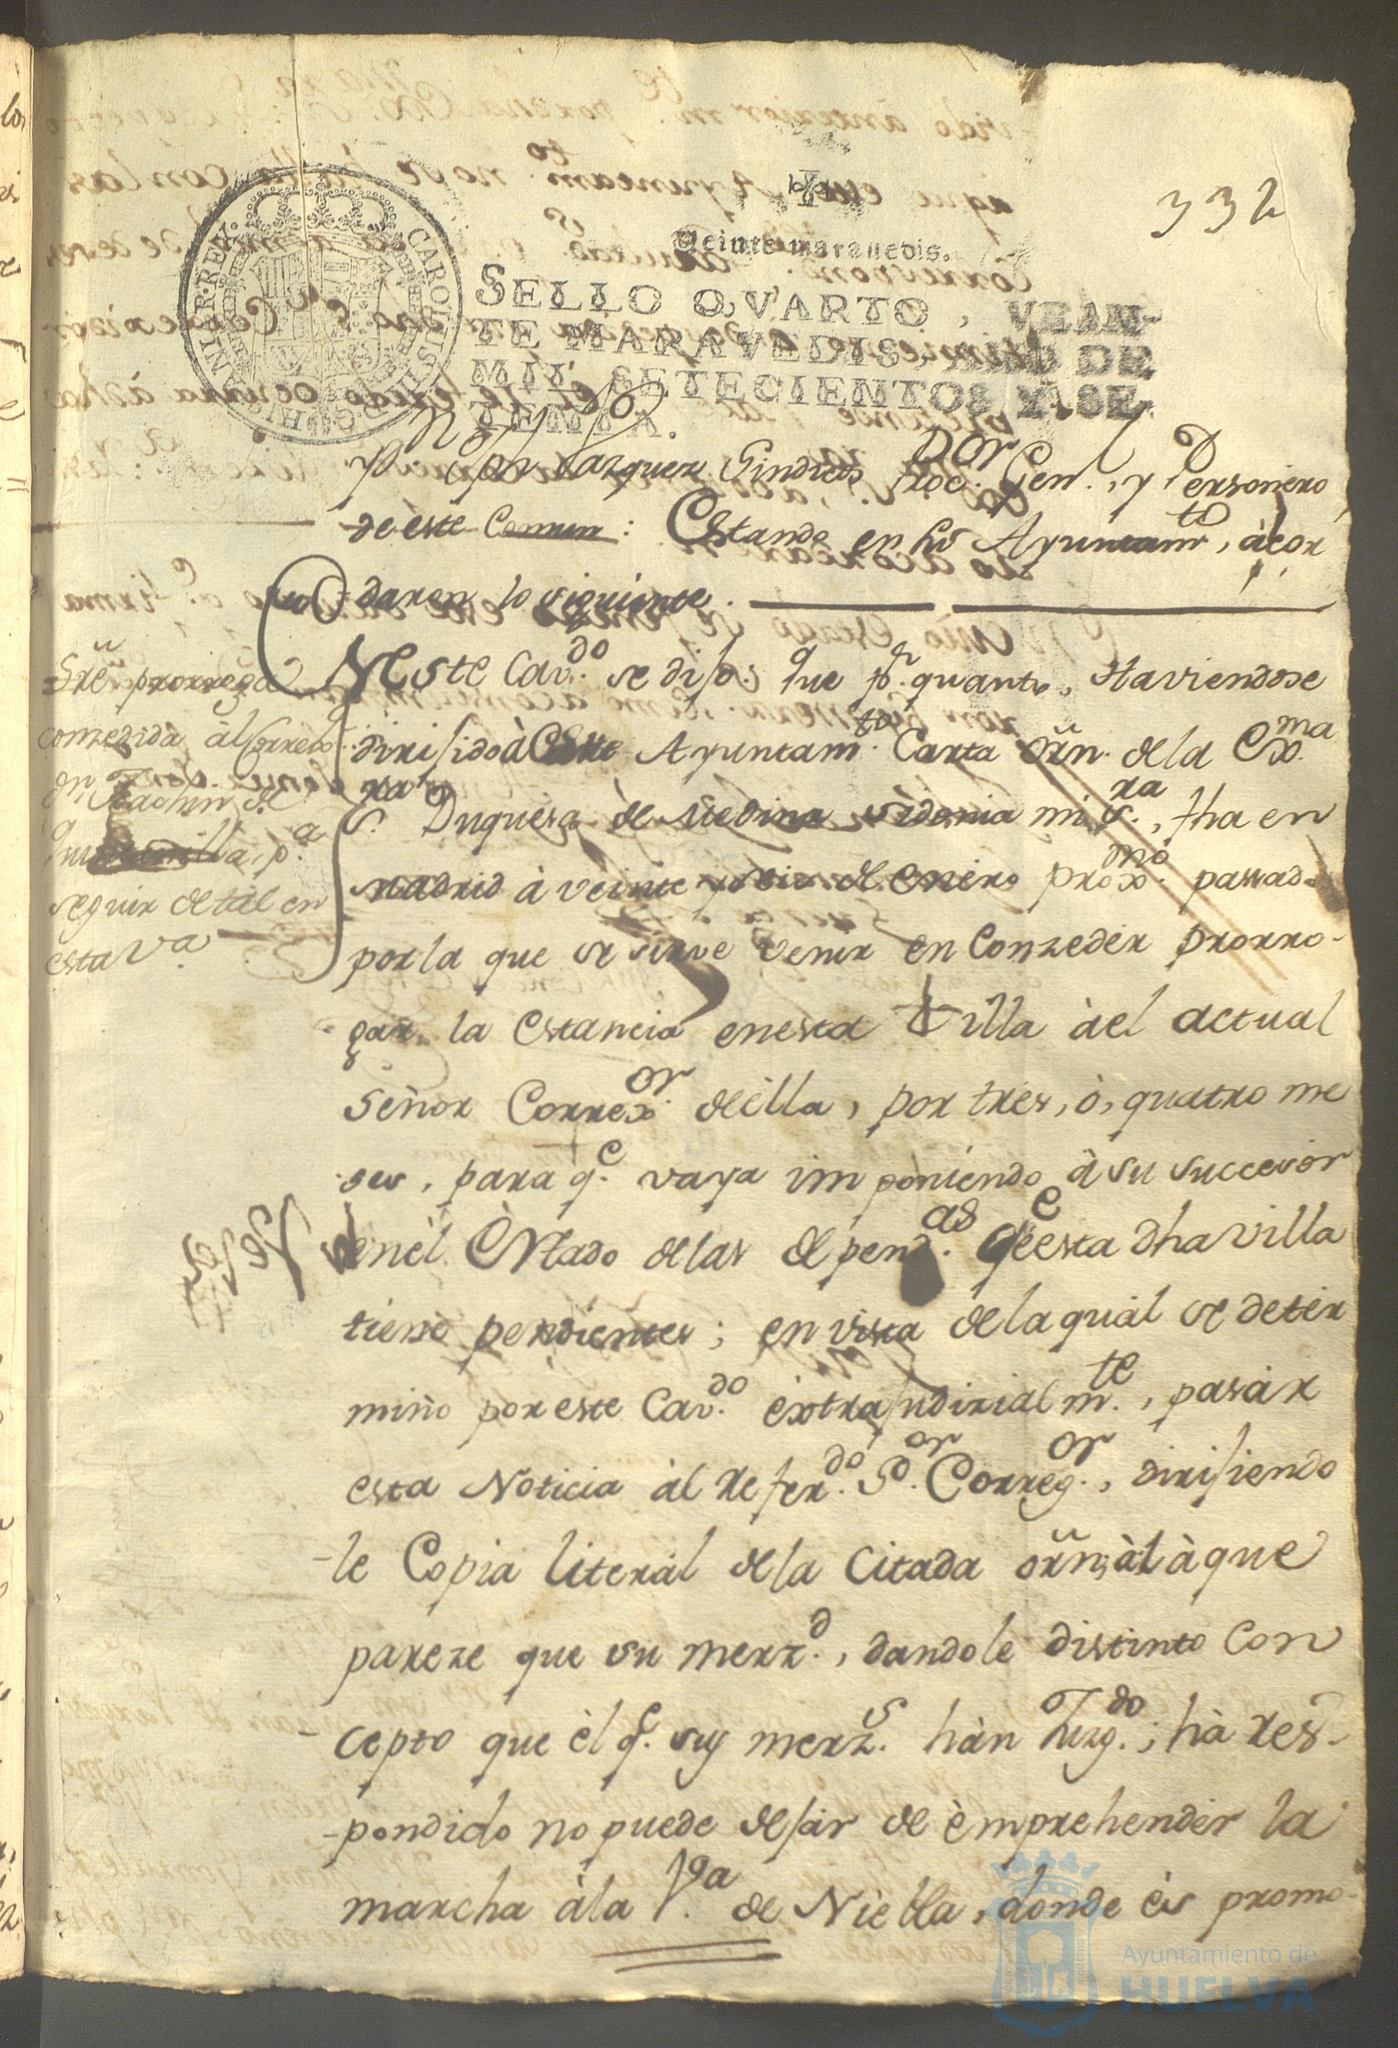 332
Veinte maravedis.
SELLO QVARTO, VEIN-
TE MARAVEDIS, AÑO DE
MIL SETECIENTOS Y SE-
TENTA.
CAROLUS III D G HISP ET IND R
Vazquez Sindico Proc.or Gen.l, y Personero
de este Comun: Estando en su Ayuntam.to, àcor
daron lo siguiente.
Sre prorroga
conzedida àl Correxo.r
dn. Joachin de
Quintanilla, p.a
seguir de tal en
esta V.a
NEste Cav.do se dijo: Que p.r quanto, Haviendose
dirijido à Este Ayuntam.to Carta orñ. de la Ex.ma
S.ra Duquesa de Medina Sidonia mi S.ra, fha en
Madrid à veinte y seis de enero prox.mo passado
por la que se sirve venir en Conzeder prorro-
gar la estancia en esta Villa àel actual
Señor Correx.or de èlla, por tres, ò, quatro me
ses, para q.e vaya imponiendo à su successor
en èl Estado de las depend.as q.e esta dha villa
tiene pendientes; en vista de la qual se deter
minò por este Cav.do èxtrajudizialm.te, pasàr
esta Noticia àl Refer.do S.or Correg.or, dirijiendo
le Copia literàl de la Citada orñ, àl àque
pareze que su merz.d, dandole distinto Con
cepto que èl q.e sus merz.s hàn Juzg.do; hà res-
pondido no puede dejàr de èmprehendèr la
marcha àla V.a de Nièbla, donde ès promo-
Ayuntamiento de
HUELVA